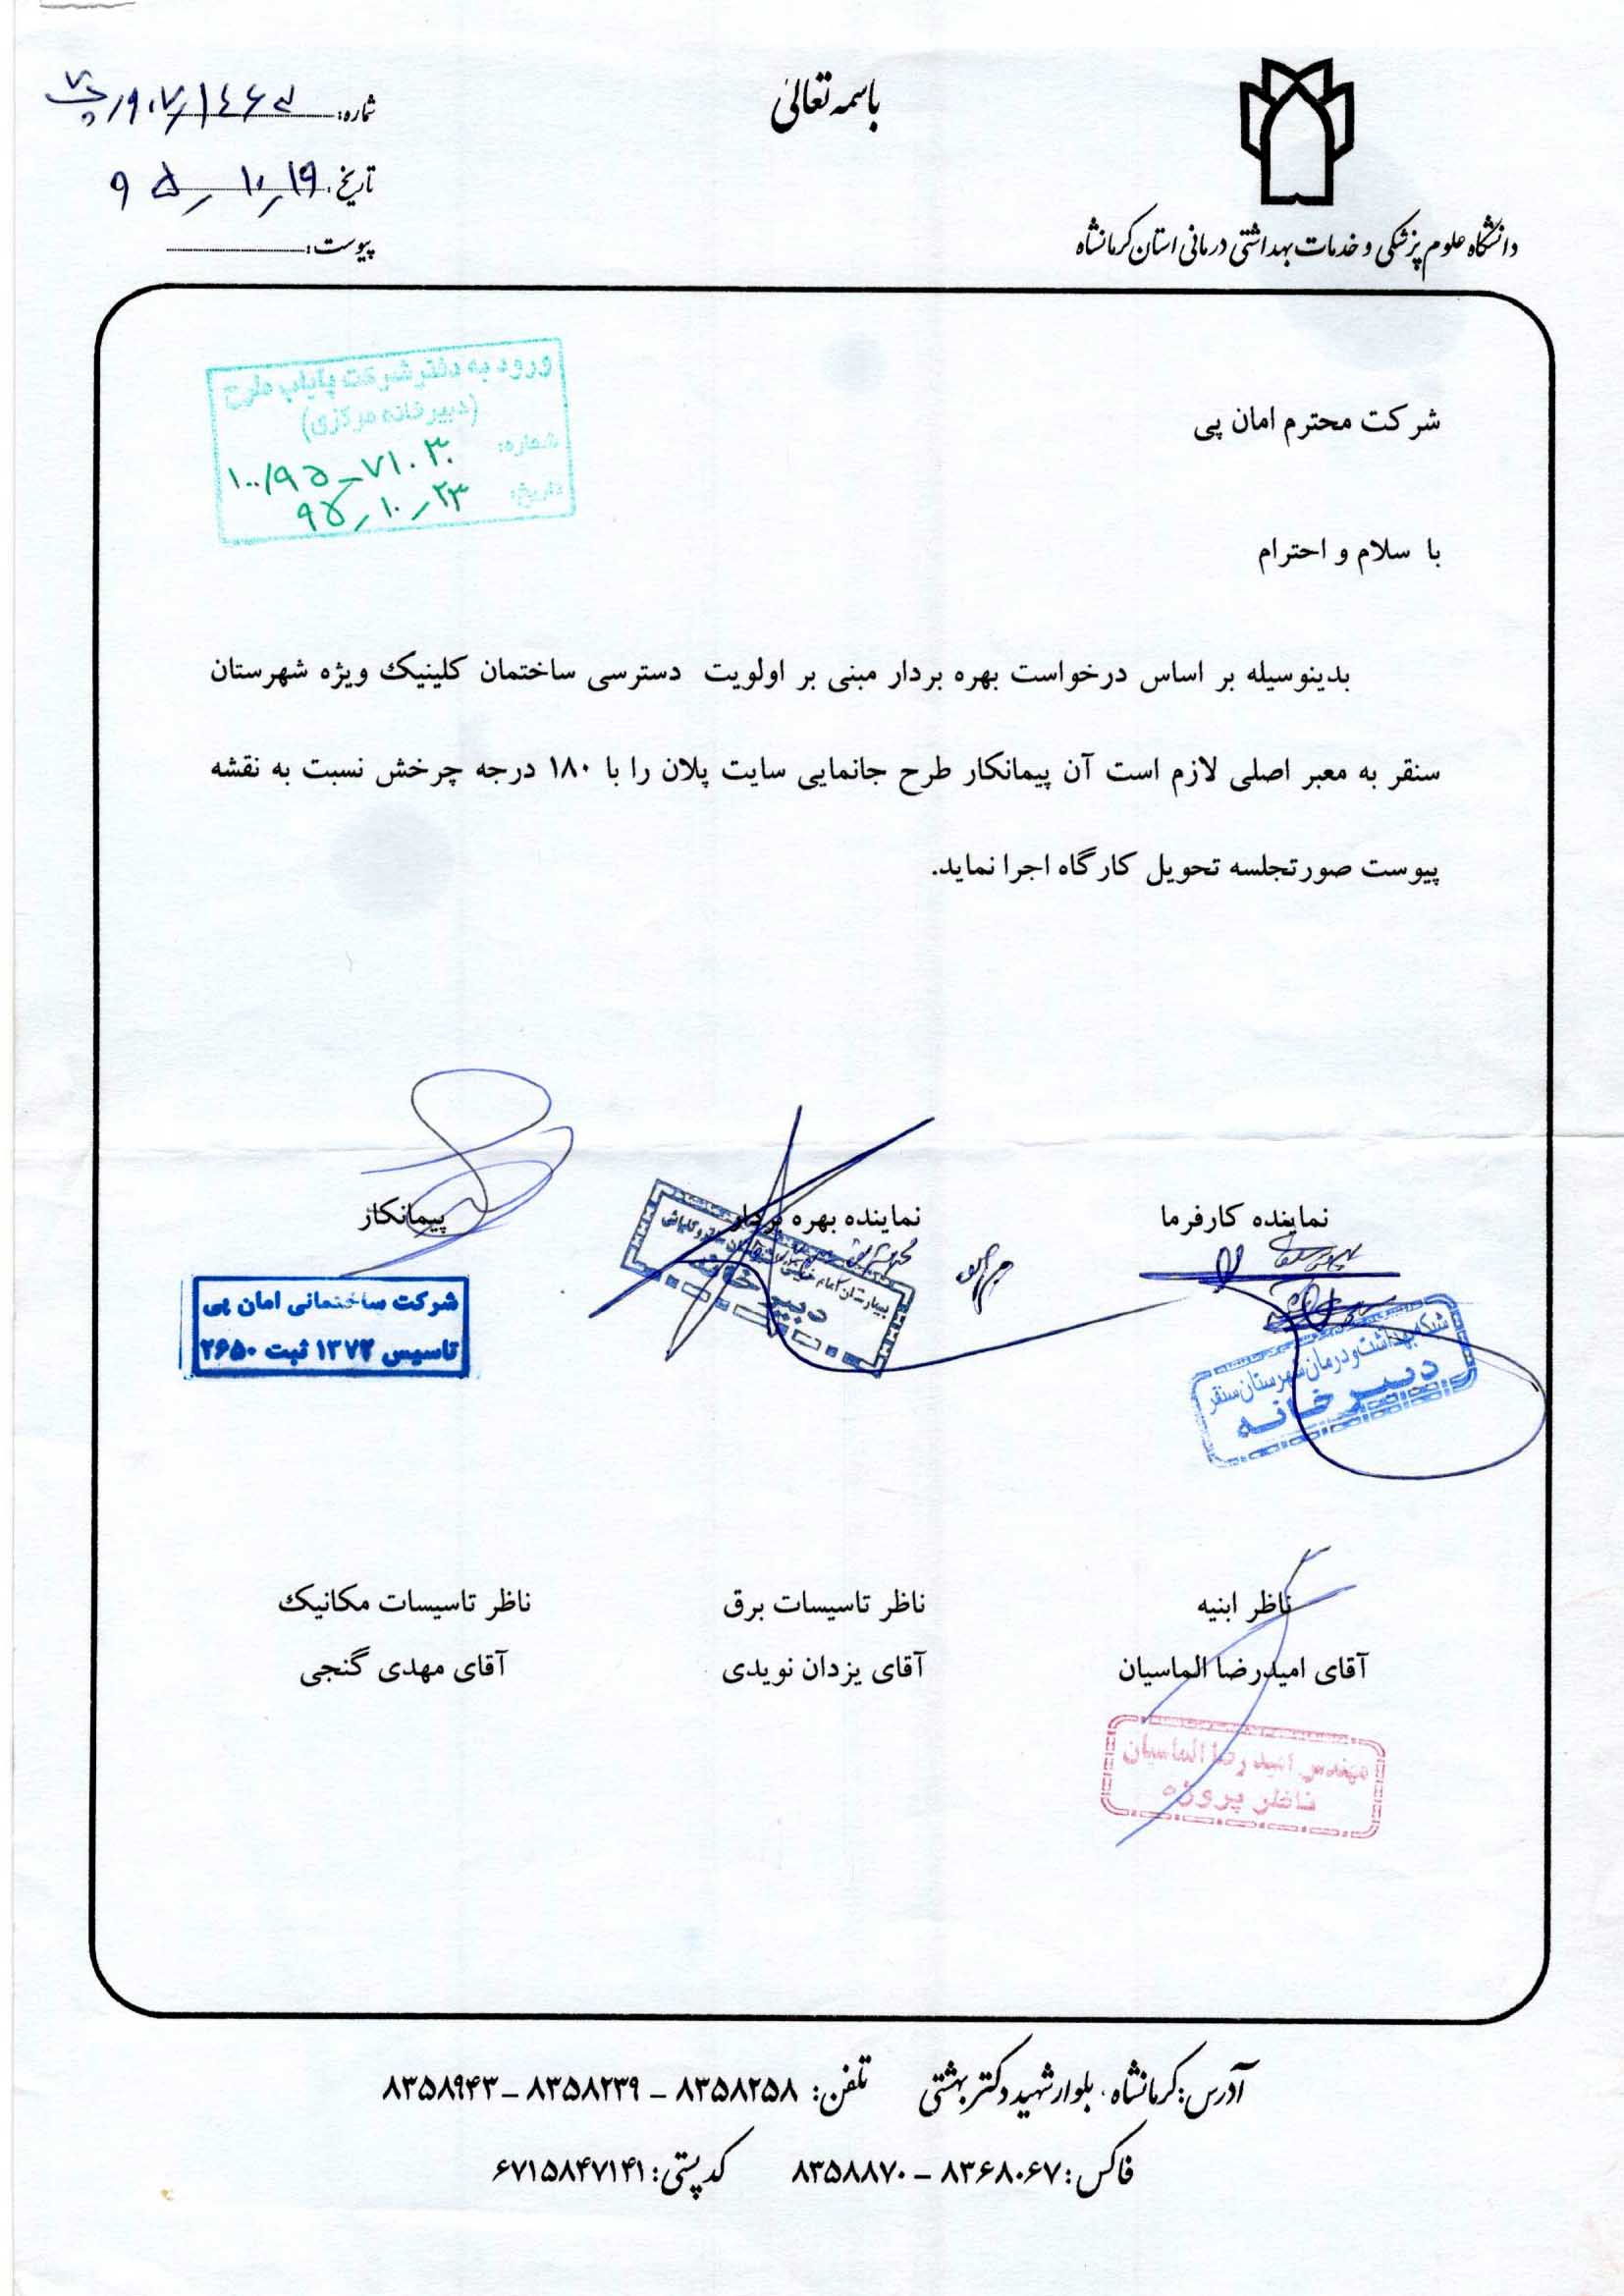 باسمه تعالی
دانشگاه علوم پزشکی و خدمات بهداشتی درمانی استان کرمانشاه
شماره:
تاریخ: ۹۵/۱۰/۱۹
پیوست:
ورود به دفتر شرکت پایاب طرح
(دبیرخانه مرکزی)
شماره: ۱۰۰/۹۵-۷۱۰۳۰
تاریخ: ۹۵/۱۰/۲۳
شرکت محترم امان پی
با سلام و احترام
بدینوسیله بر اساس درخواست بهره بردار مبنی بر اولویت دسترسی ساختمان کلینیک ویژه شهرستان
سنقر به معبر اصلی لازم است آن پیمانکار طرح جانمایی سایت پلان را با ۱۸۰ درجه چرخش نسبت به نقشه
پیوست صورتجلسه تحویل کارگاه اجرا نماید.
نماینده کارفرما
نماینده بهره بردار
پیمانکار
شبکه بهداشت و درمان شهرستان سنقر
دبیرخانه
بیمارستان امام خمینی
دبیرخانه
شرکت ساختمانی امان پی
تاسیس ۱۳۷۲ ثبت ۲۶۵۰
ناظر ابنیه
آقای امیدرضا الماسیان
ناظر تاسیسات برق
آقای یزدان نویدی
ناظر تاسیسات مکانیک
آقای مهدی گنجی
مهندس امیدرضا الماسیان
ناظر پروژه
آدرس: کرمانشاه، بلوار شهید دکتر بهشتی تلفن: ۸۳۵۸۲۵۸ – ۸۳۵۸۲۳۹ – ۸۳۵۸۹۴۳
فاکس: ۸۳۶۸۰۶۷ – ۸۳۵۸۸۷۰ کد پستی: ۶۷۱۵۸۴۷۱۴۱